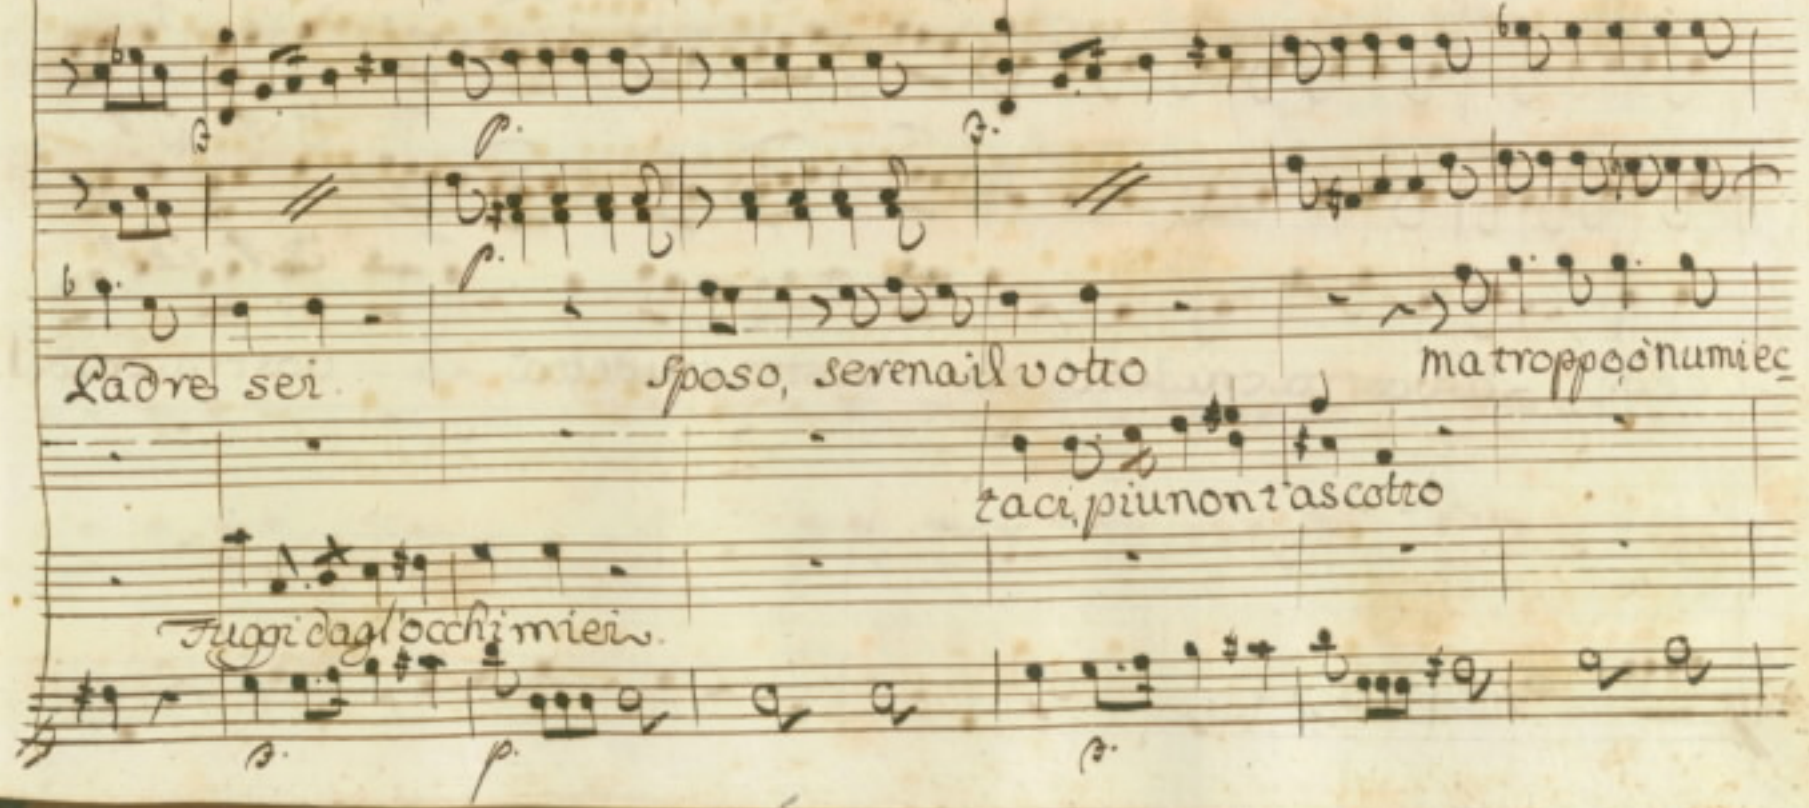 Padre sei sposo, serena il volto ma troppo, o numi ec
taci, piu non t'ascolto
Fuggi dagl'occhi miei